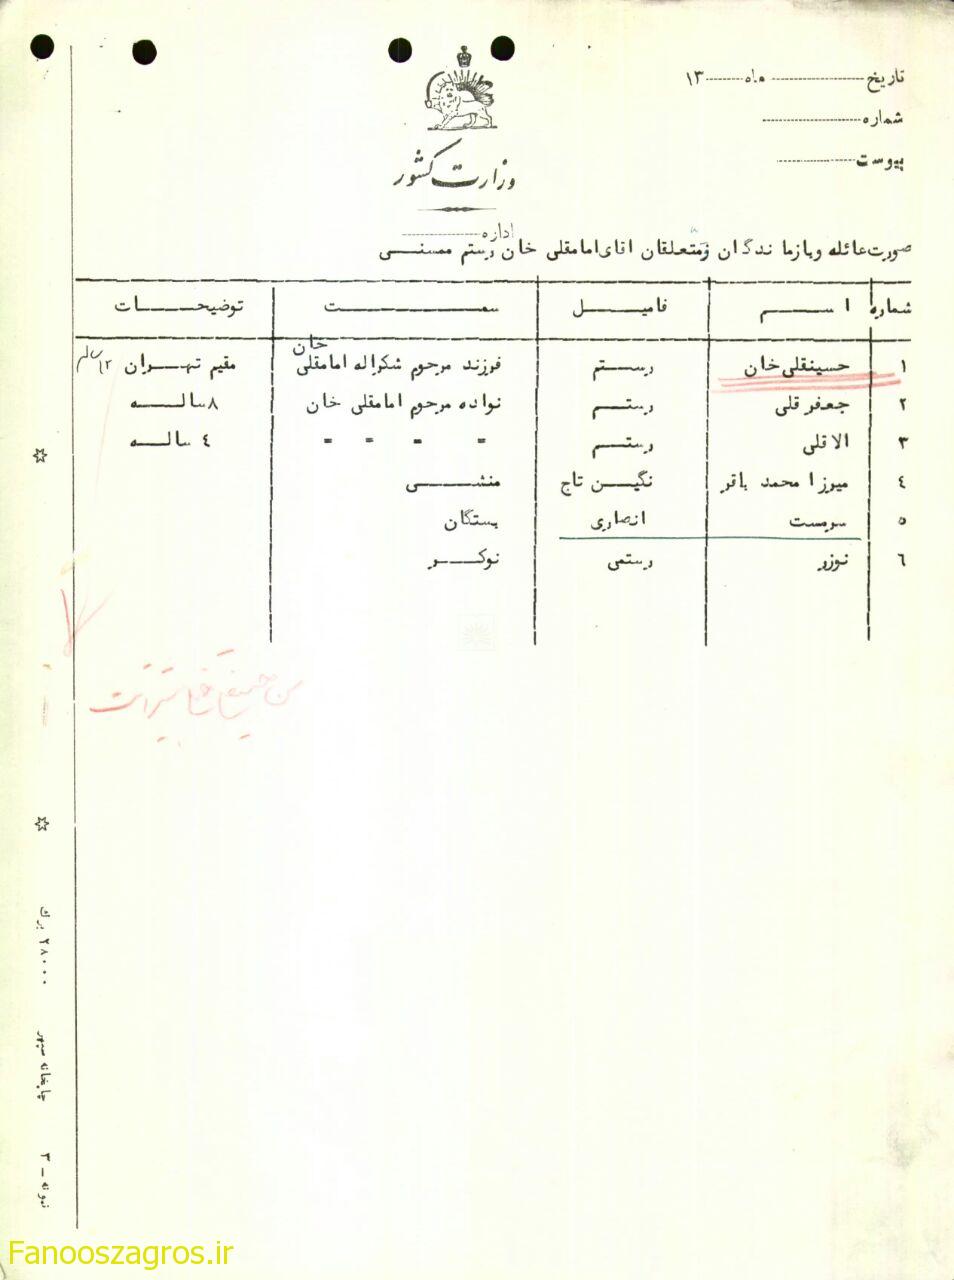 تاریخ ماه ۱۳
شماره
پیوست
وزارت کشور
اداره
صورت عائله وبازما ندگان ومتعلقان اقای امامقلی خان رستم ممسنی
شماره اسم فامیل سمت توضیحات
۱ حسینقلی خان رستم فرزند مرحوم شکراله امامقلی خان مقیم تهران ۱۲ ساله
۲ جعفر قلی رستم نواده مرحوم امامقلی خان ۸ ساله
۳ الا قلی رستم = = = = ٤ ساله
٤ میرزا محمد باقر نگین تاج منشی
٥ سرمست انصاری بستگان
٦ نوذر رستمی نوکر
۲۸۰۰۰ برك
چاپخانه سپهر
نمونه – ۳
Fanooszagros.ir